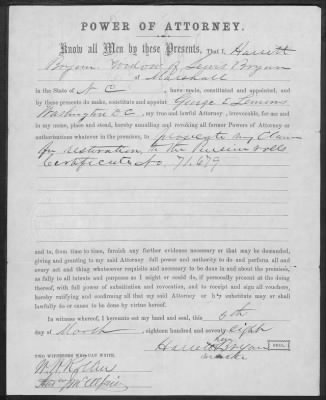 POWER OF ATTORNEY.
Know all Men by these Presents, That I, Harriett
Bryan widow of Lewis Bryan
of Marshall
in the State of N C, have made, constituted and appointed, and
by these presents do make, constitute and appoint George E Lemons
Washington D C, my true and lawful Attorney, irrevocable, for me and
in my name, place and stead, hereby annulling and revoking all former Powers of Attorney or
authorizations whatever in the premises, to prosecute my Claim
for restoration to the Pension rolls
Certificate No. 71.679
and to, from time to time, furnish any further evidence necessary or that may be demanded,
giving and granting to my said Attorney full power and authority to do and perform all and
every act and thing whatsoever requisite and necessary to be done in and about the premises,
as fully to all intents and purposes as I might or could do, if personally present at the doing
thereof, with full power of substitution and revocation, and to receipt and sign all vouchers,
hereby ratifying and confirming all that my said Attorney or his substitute may or shall
lawfully do or cause to be done by virtue hereof.
In witness whereof, I hereunto set my hand and seal, this 6th
day of March, eighteen hundred and seventy eight
her
Harriett Bryan SEAL.
mark
TWO WITNESSES WHO CAN WRITE.